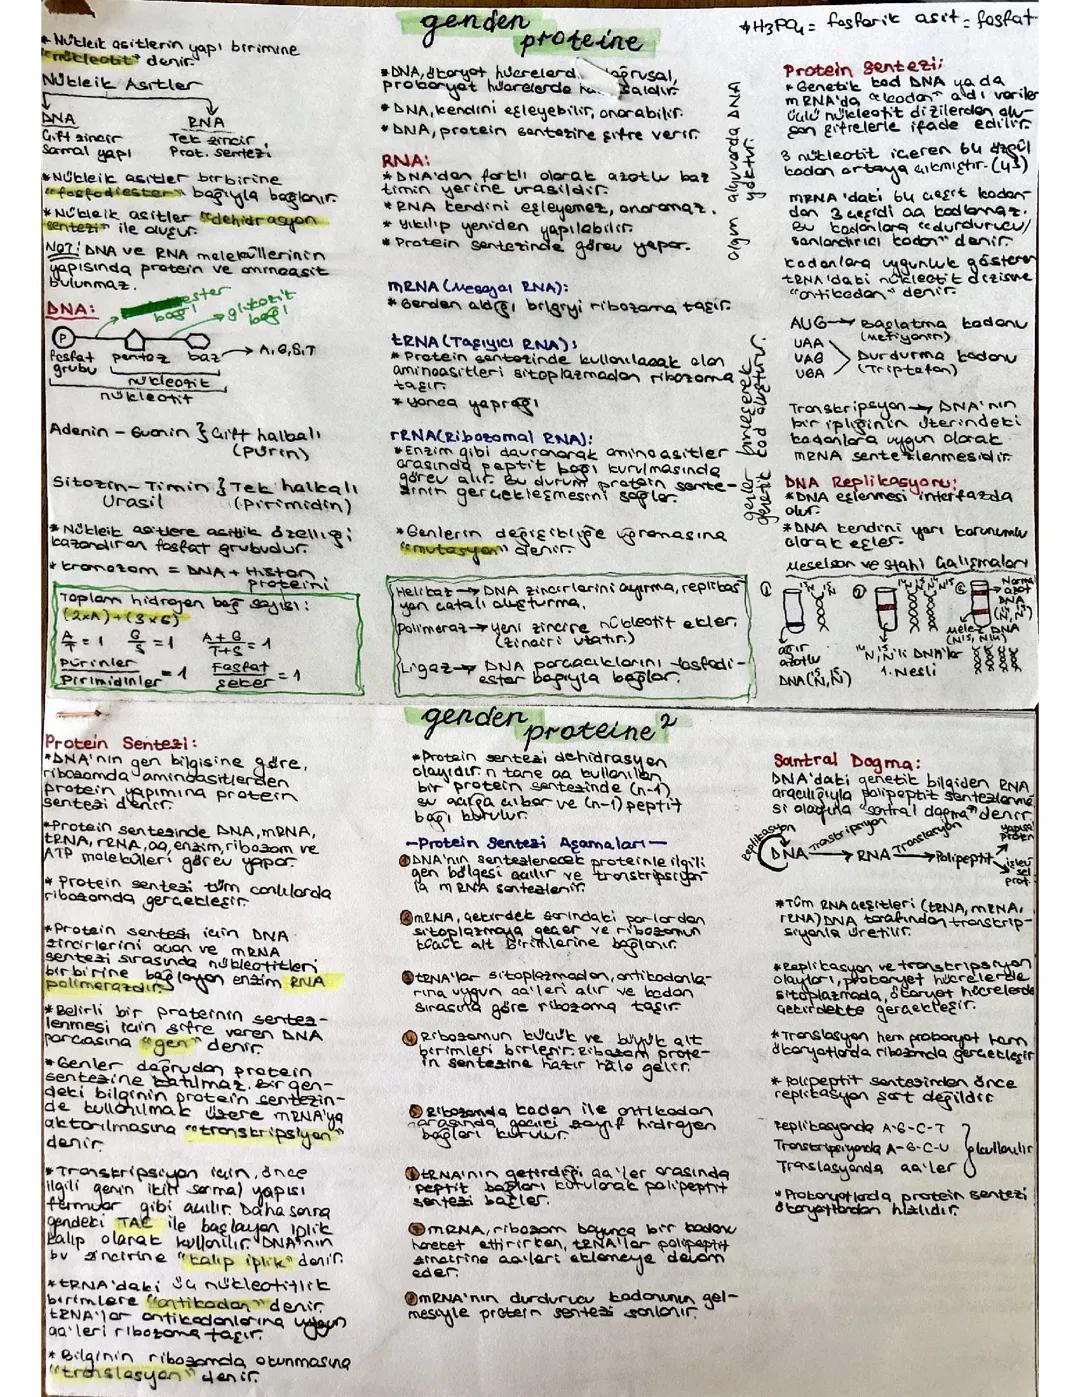 genden
proteine
* H3PO4 = fosforik asit = fosfat
* Nükleik asitlerin yapı birimine
"nükleotit" denir.
Nükleik Asitler
DNA
Çift zincir
Sarmal yapı
RNA
Tek zincir
Prot. sentezi
* Nükleik asitler birbirine
"fosfodiester" bağıyla bağlanır.
* Nükleik asitler "dehidrasyon
sentezi" ile oluşur.
NOT: DNA ve RNA moleküllerinin
yapısında protein ve aminoasit
bulunmaz.
DNA:
ester
bağı
glikozit
bağı
P
fosfat
grubu
pentoz
baz
A, G, S, T
nükleozit
nükleotit
Adenin - Guanin } Çift halkalı
(pürin)
Sitozin - Timin } Tek halkalı
Urasil (pirimidin)
* Nükleik asitlere asitlik özelliği
kazandıran fosfat grubudur.
* kromozom = DNA + Histon
proteini
Toplam hidrojen bağ sayısı:
(2xA) + (3xG)
A/T = 1 G/S = 1 A+G/T+S = 1
Pürinler/Pirimidinler = 1 Fosfat/Şeker = 1
* DNA, ökaryot hücrelerd. doğrusal,
prokaryot hücrelerde ha saldır.
* DNA, kendini eşleyebilir, onarabilir.
* DNA, protein sentezine şifre verir.
RNA:
* DNA'dan farklı olarak azotlu baz
timin yerine urasildir.
* RNA kendini eşleyemez, onaramaz.
* Yıkılıp yeniden yapılabilir.
* Protein sentezinde görev yapar.
olgun alyuvarda DNA
yoktur.
mRNA (Mesajcı RNA):
* Genden aldığı bilgiyi ribozoma taşır.
tRNA (Taşıyıcı RNA):
* Protein sentezinde kullanılacak olan
aminoasitleri sitoplazmadan ribozoma
taşır.
* yonca yaprağı
rRNA (Ribozomal RNA):
* Enzim gibi davranarak aminoasitler
arasında peptit bağı kurulmasında
görev alır. Bu durum protein sente-
zinin gerçekleşmesini sağlar.
* Genlerin değişikliğe uğramasına
"mutasyon" denir.
genler birleşerek
genetik kod oluşturur.
Helikaz → DNA zincirlerini ayırma, replikas
yon çatalı oluşturma.
Polimeraz → yeni zincire nükleotit ekler.
(zinciri uzatır.)
Ligaz → DNA parçacıklarını fosfodi-
ester bağıyla bağlar.
Protein Sentezi:
* Genetik kod DNA ya da
mRNA'da "kodon" adı verilen
üçlü nükleotit dizilerden olu-
şan şifrelerle ifade edilir.
3 nükleotit içeren 64 özgül
kodon ortaya çıkmıştır. (4³)
mRNA'daki 64 çeşit kodon-
dan 3 çeşidi aa kodlamaz.
Bu kodonlara "durdurucu/
sonlandırıcı kodon" denir.
Kodonlara uygunluk gösteren
tRNA'daki nükleotit dizisine
"antikodon" denir.
AUG → Başlatma kodonu
(Metiyonin)
UAA
UAG
UGA
Durdurma kodonu
(Triptofan)
Transkripsyon → DNA'nın
bir ipliğinin üzerindeki
kodonlara uygun olarak
mRNA sentezlenmesidir.
DNA Replikasyonu:
* DNA eşlenmesi interfazda
olur.
* DNA kendini yarı korunumlu
olarak eşler.
Meselson ve Stahl Çalışmaları
ağır
azotlu
DNA (N, N)
1. Nesil
melez DNA
genden
proteine 2
Protein Sentezi:
* DNA'nın gen bilgisine göre,
ribozomda aminoasitlerden
protein yapımına protein
sentezi denir.
* Protein sentezinde DNA, mRNA,
tRNA, rRNA, aa, enzim, ribozom ve
ATP molekülleri görev yapar.
* Protein sentezi tüm canlılarda
ribozomda gerçekleşir.
* Protein sentezi için DNA
zincirlerini açan ve mRNA
sentezi sırasında nükleotitleri
birbirine bağlayan enzim RNA
polimerazdır.
* Belirli bir proteinin sentez-
lenmesi için şifre veren DNA
parçasına "gen" denir.
* Genler doğrudan protein
sentezine katılmaz. Bir gen-
deki bilginin protein sentezin-
de kullanılmak üzere mRNA'ya
aktarılmasına "transkripsiyon"
denir.
* Transkripsiyon için, önce
ilgili genin ikili sarmal yapısı
fermuar gibi açılır. Daha sonra
gendeki TAC ile başlayan iplik
kalıp olarak kullanılır. DNA'nın
bu zincirine "kalıp iplik" denir.
* tRNA'daki üç nükleotitlik
birimlere "antikodon" denir.
tRNA'lar antikodonlarına uygun
aa'leri ribozoma taşır.
* Bilginin ribozomda okunmasına
"translasyon" denir.
* Protein sentezi dehidrasyon
olayıdır. n tane aa kullanılan
bir protein sentezinde (n-1)
su açığa çıkar ve (n-1) peptit
bağı kurulur.
- Protein Sentezi Aşamaları -
1 DNA'nın sentezlenecek proteinle ilgili
gen bölgesi açılır ve transkripsiyon-
la mRNA sentezlenir.
2 mRNA, çekirdek zarındaki porlardan
sitoplazmaya geçer ve ribozomun
küçük alt birimlerine bağlanır.
3 tRNA'lar sitoplazmadan, antikodonla-
rına uygun aa'leri alır ve kodon
sırasına göre ribozoma taşır.
4 Ribozomun küçük ve büyük alt
birimleri birleşir. Ribozom prote-
in sentezine hazır hâle gelir.
5 Ribozomda kodon ile antikodon
arasında geçici zayıf hidrojen
bağları kurulur.
6 tRNA'nın getirdiği aa'ler arasında
peptit bağları kurularak polipeptit
sentezi başlar.
7 mRNA, ribozom boyunca bir kodonu
hareket ettirirken, tRNA'lar polipeptit
zincirine aa'leri eklemeye devam
eder.
8 mRNA'nın durdurucu kodonunun gel-
mesiyle protein sentezi sonlanır.
Santral Dogma:
DNA'daki genetik bilgiden RNA
aracılığıyla polipeptit sentezlenme
si olayına "santral dogma" denir.
Replikasyon
DNA Transkripsiyon → RNA Translasyon → Polipeptit
yapısal
protein
işlev
sel
prot.
* Tüm RNA çeşitleri (tRNA, mRNA,
rRNA) DNA tarafından transkrip-
siyonla üretilir.
* Replikasyon ve transkripsiyon
olayları, prokaryot hücrelerde
sitoplazmada, ökaryot hücrelerde
çekirdekte gerçekleşir.
* Translasyon hem prokaryot hem
ökaryotlarda ribozomda gerçekleşir
* Polipeptit sentezinden önce
replikasyon şart değildir.
Replikasyonda A-G-C-T
Transkripsiyonda A-G-C-U } kullanılır
Translasyonda aa'ler
* Prokaryotlarda protein sentezi
ökaryotlardan hızlıdır.